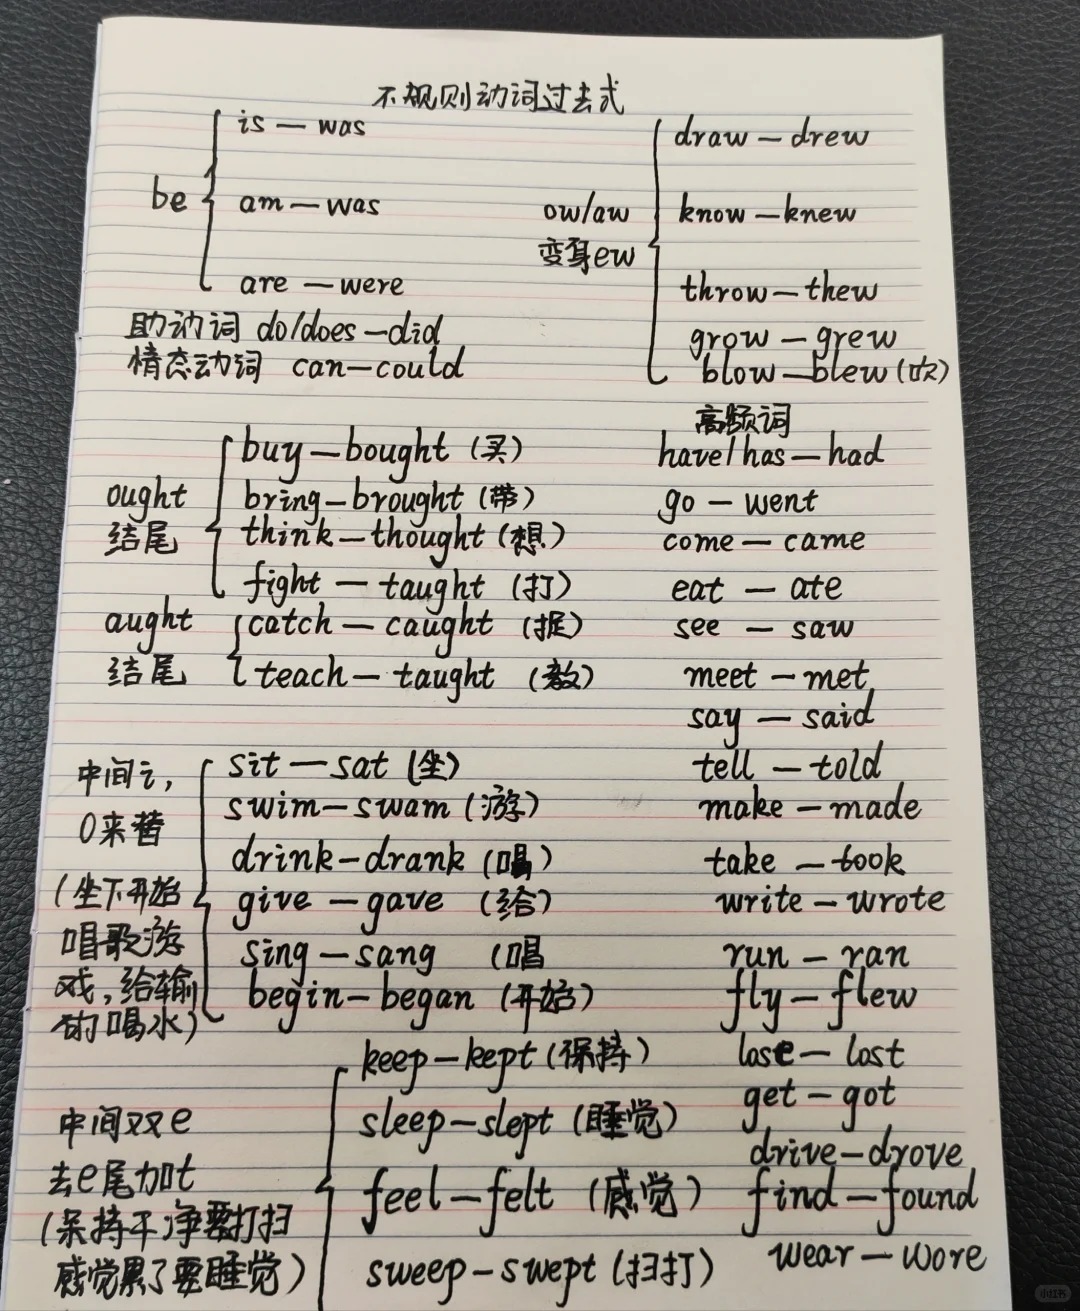 不规则动词过去式
be
is — was
am — was
are — were
助动词 do/does — did
情态动词 can — could
ow/aw
变身ew
draw — drew
know — knew
throw — thew
grow — grew
blow — blew (吹)
ought
结尾
buy — bought (买)
bring — brought (带)
think — thought (想)
fight — taught (打)
aught
结尾
catch — caught (捉)
teach — taught (教)
中间i,
a来替
(坐下开始
唱歌游
戏,给输
的喝水)
sit — sat (坐)
swim — swam (游)
drink — drank (唱)
give — gave (给)
sing — sang (唱
begin — began (开始)
中间双e
去e尾加t
(保持干净要打扫
感觉累了要睡觉)
keep — kept (保持)
sleep — slept (睡觉)
feel — felt (感觉)
sweep — swept (扫打)
高频词
have/has — had
go — went
come — came
eat — ate
see — saw
meet — met
say — said
tell — told
make — made
take — took
write — wrote
run — ran
fly — flew
lose — lost
get — got
drive — drove
find — found
wear — wore
小红书